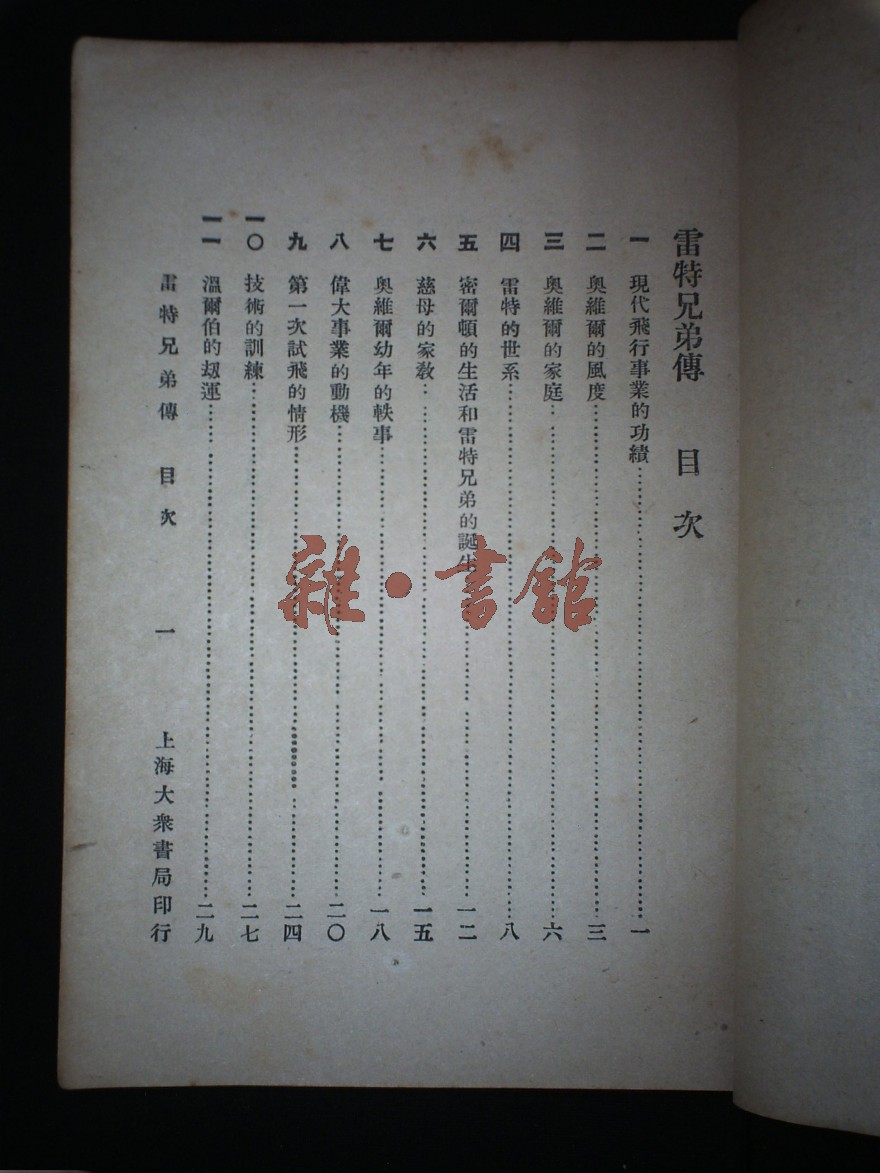 雷特兄弟傳 目次
一 現代飛行事業的功績 一
二 奥維爾的風度 三
三 奥維爾的家庭 六
四 雷特的世系 八
五 密爾頓的生活和雷特兄弟的誕生 一二
六 慈母的家教 一五
七 奥維爾幼年的軼事 一八
八 偉大事業的動機 二〇
九 第一次試飛的情形 二四
一〇 技術的訓練 二七
一一 溫爾伯的刼運 二九
雷特兄弟傳 目次 一 上海大衆書局印行
雜·書館